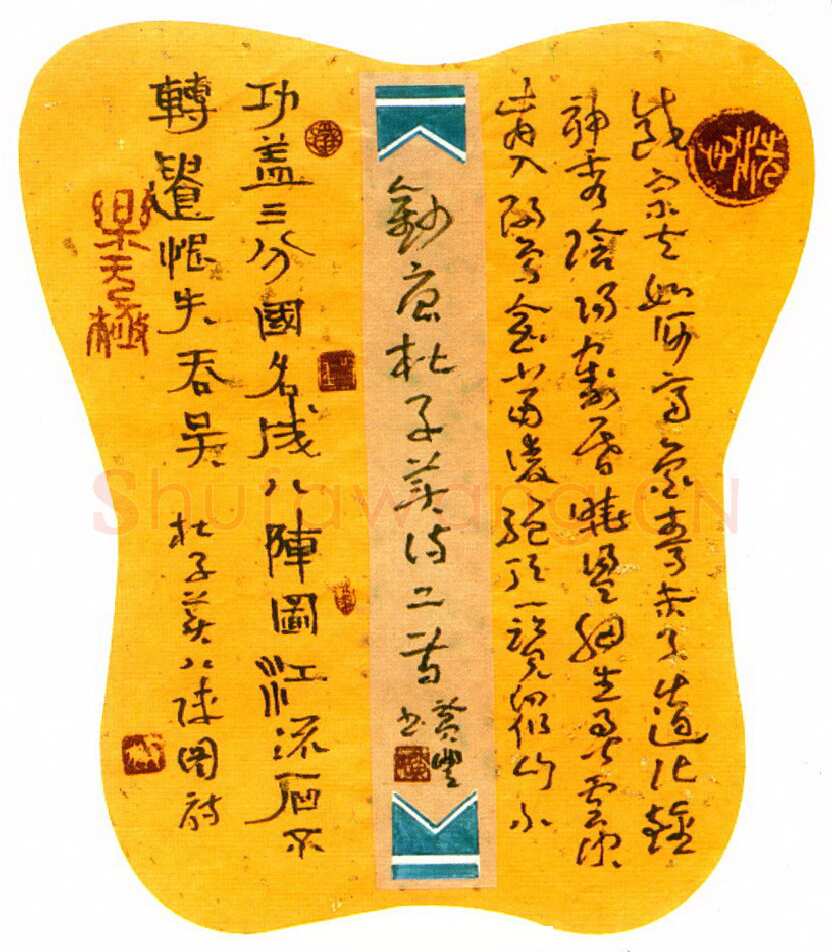 岱宗夫如何齊魯青未了造化鍾
神秀陰陽割昏曉盪胸生曾雲決
眥入歸鳥會當凌絕頂一覽眾山小
鈔唐杜子美詩二首
書
功蓋三分國名成八陣圖江流石不
轉遺恨失吞吳
杜子美八陣圖詩
Shufawang.CN